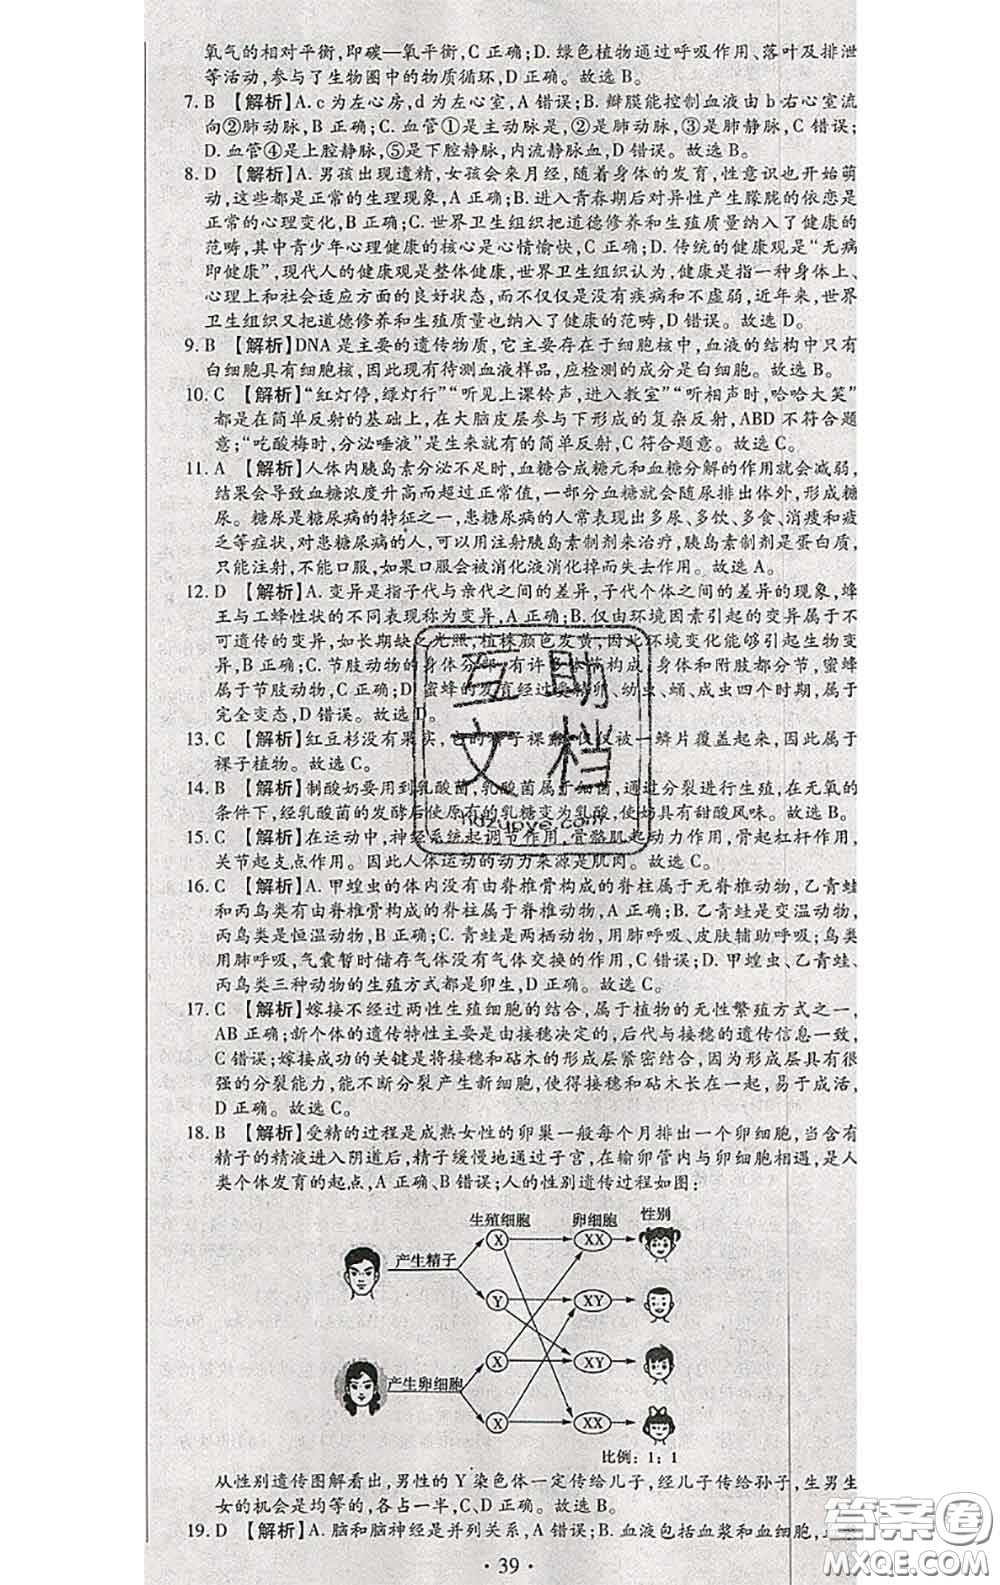 氧气的相对平衡,即碳—氧平衡,C 正确;D. 绿色植物通过呼吸作用、落叶及排泄
等活动,参与了生物圈中的物质循环,D 正确。故选 B。
7. B 【解析】A. c 为左心房,d 为左心室,A 错误;B. 瓣膜能控制血液由 b 右心室流
向②肺动脉,B 正确;C. 血管①是主动脉是,②是肺动脉,③是肺静脉,C 错误;
D. 血管④是上腔静脉,⑤是下腔静脉,内流静脉血,D 错误。故选 B。
8. D 【解析】A. 男孩出现遗精,女孩会来月经,随着身体的发育,性意识也开始萌
动,这些都是正常的生理现象,A 正确;B. 进入青春期后对异性产生朦胧的依恋是
正常的心理变化,B 正确;C. 世界卫生组织把道德修养和生殖质量纳入了健康的
范畴,其中青少年心理健康的核心是心情愉快,C 正确;D. 传统的健康观是“无病
即健康”,现代人的健康观是整体健康,世界卫生组织认为,健康是指一种身体上、
心理上和社会适应方面的良好状态,而不仅仅是没有疾病和不虚弱,近年来,世界
卫生组织又把道德修养和生殖质量也纳入了健康的范畴,D 错误。故选 D。
9. B 【解析】DNA 是主要的遗传物质,它主要存在于细胞核中,血液的结构中只有
白细胞具有细胞核,因此现有待测血液样品,应检测的成分是白细胞。故选 B。
10. C 【解析】“红灯停,绿灯行”“听见上课铃声,进入教室”“听相声时,哈哈大笑”
都是在简单反射的基础上,在大脑皮层参与下形成的复杂反射,ABD 不符合题
意;“吃酸梅时,分泌唾液”是生来就有的简单反射,C 符合题意。故选 C。
11. A 【解析】人体内胰岛素分泌不足时,血糖合成糖元和血糖分解的作用就会减弱,
结果会导致血糖浓度升高而超过正常值,一部分血糖就会随尿排出体外,形成糖
尿。糖尿是糖尿病的特征之一,患糖尿病的人常表现出多尿、多饮、多食、消瘦和疲
乏等症状,对患糖尿病的人,可以用注射胰岛素制剂来治疗,胰岛素制剂是蛋白质,
只能注射,不能口服,如果口服会被消化液消化掉而失去作用。故选 A。
12. D 【解析】A. 变异是指子代与亲代之间的差异,子代个体之间的差异的现象,蜂
王与工蜂性状的不同表现称为变异,A 正确;B. 仅由环境因素引起的变异属于不
可遗传的变异,如长期缺 光照,植株颜色发黄,因此环境变化能够引起生物变
异,B 正确;C. 节肢动物的身体分部,有许多体节构成,身体和附肢都分节,蜜蜂
属于节肢动物,C 正确;D 蜜蜂的发育经过受精卵、幼虫、蛹、成虫四个时期,属于
完全变态,D 错误。故选 D。
13. C 【解析】红豆杉没有果实,它的种子裸露,仅仅被一鳞片覆盖起来,因此属于
裸子植物。故选 C。
14. B 【解析】制酸奶要用到乳酸菌,乳酸菌属于细菌,通过分裂进行生殖,在无氧的
条件下,经乳酸菌的发酵后使原有的乳糖变为乳酸,使奶具有甜酸风味。故选 B。
15. C 【解析】在运动中,神经系统起调节作用,骨骼肌起动力作用,骨起杠杆作用,
关节起支点作用。因此人体运动的动力来源是肌肉。故选 C。
16. C 【解析】A. 甲蝗虫的体内没有由脊椎骨构成的脊柱属于无脊椎动物,乙青蛙
和丙鸟类有由脊椎骨构成的脊柱属于脊椎动物,A 正确;B. 乙青蛙是变温动物,
丙鸟类是恒温动物,B 正确;C. 青蛙是两栖动物,用肺呼吸、皮肤辅助呼吸;鸟类
用肺呼吸,气囊暂时储存气体没有气体交换的作用,C 错误;D. 甲蝗虫、乙青蛙、
丙鸟类三种动物的生殖方式都是卵生,D 正确。故选 C。
17. C 【解析】嫁接不经过两性生殖细胞的结合,属于植物的无性繁殖方式之一,
AB 正确;新个体的遗传特性主要是由接穗决定的,后代与接穗的遗传信息一致,
C 错误;嫁接成功的关键是将接穗和砧木的形成层紧密结合,因为形成层具有很
强的分裂能力,能不断分裂产生新细胞,使得接穗和砧木长在一起,易于成活,
D 正确。故选 C。
18. B 【解析】受精的过程是成熟女性的卵巢一般每个月排出一个卵细胞,当含有
精子的精液进入阴道后,精子缓慢地通过子宫,在输卵管内与卵细胞相遇,是人
类个体发育的起点,A 正确、B 错误;人的性别遗传过程如图:
生殖细胞 卵细胞 性别
产生精子
X XX
Y XY
产生卵细胞
X XY
X XX
比例:1:1
从性别遗传图解看出,男性的 Y 染色体一定传给儿子,经儿子传给孙子,生男生
女的机会是均等的,各占一半,C、D 正确。故选 B。
19. D 【解析】A. 脑和脑神经是并列关系,A 错误;B. 血液包括血浆和血细胞,
· 39 ·
互助
文档
huzupye.com
答案圈
MXQE.COM